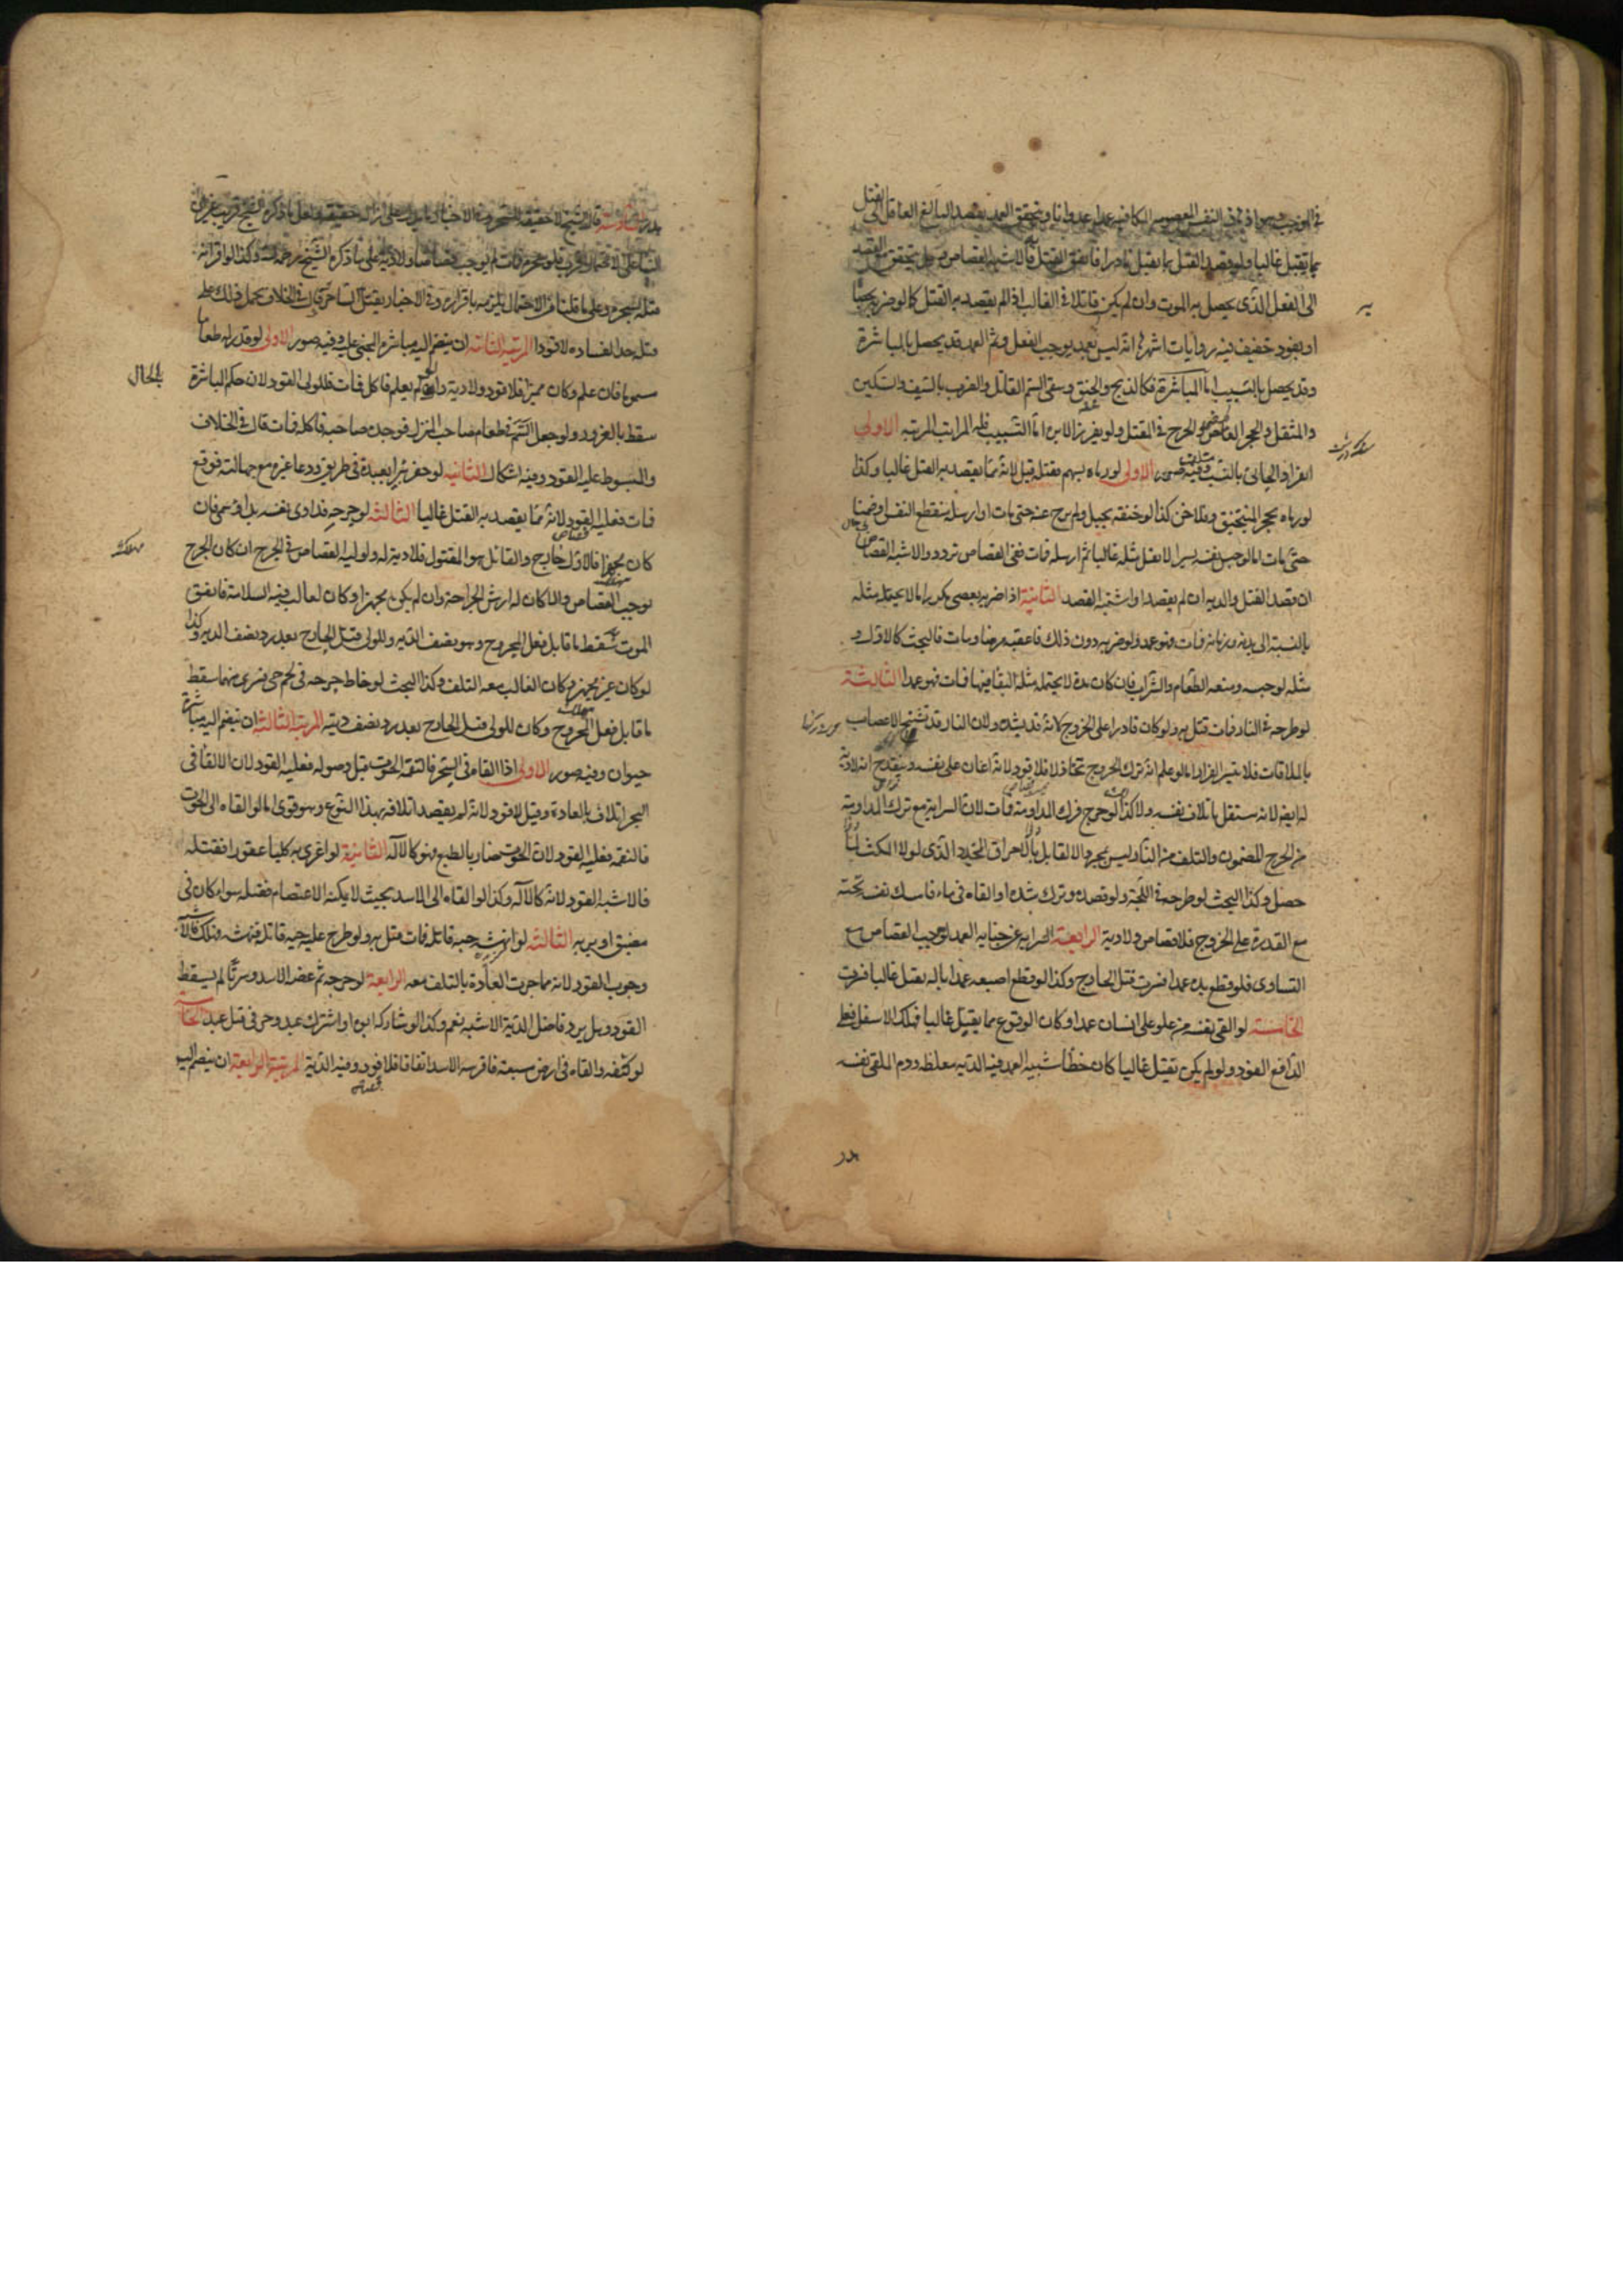 في الموجب وهو ازهاق النفس المعصومة المكافئة عمدا عدوانا ويتحقق العمد بقصد البالغ العاقل الى القتل
بما يقتل غالبا ولو قصد القتل بما يقتل نادرا فاتفق القتل فالاشبه القصاص وهل يتحقق مع القصد
الى الفعل الذى يحصل به الموت وان لم يكن قاتلا فى الغالب اذا لم يقصد به القتل كما لو ضربه بحصاة
او بعود خفيف فيه روايات اشهرها انه ليس بعمد يوجب القود ثم العمد قد يحصل بالمباشرة
وقد يحصل بالتسبيب اما المباشرة فكالذبح والخنق وسقى السم القاتل والضرب بالسيف والسكين
والمثقل والحجر الغامز والجرح فى المقتل ولو بغرز الابرة اما التسبيب فله المراتب المرتبه الاولى
انفراد الجانى بالتسبيب وفيه صور الاولى لو رماه بسهم فقتله قتل لانه مما يقصد به القتل غالبا وكذا
لو رماه بحجر المنجنيق وكذا لو خنقه بحبل ولم يرخ عنه حتى مات او ارسله منقطع النفس او ضمنا
حتى مات اما لو حبس نفسه يسيرا لا يقتل مثله غالبا ثم ارسله فمات ففى القصاص تردد والاشبه القصاص
ان قصد القتل والدية ان لم يقصد او اشتبه القصد الثانية اذا ضربه بعصى مكررا ما لا يحتمله مثله
بالنسبة الى بدنه وزمانه فمات فهو عمد ولو ضربه دون ذلك فاعقبه مرضا ومات فالبحث كالاول و
مثله لو حبسه ومنعه الطعام والشراب فان كان مدة لا يحتمل مثله البقا فيها فمات فهو عمد الثالثة
لو طرحه فى النار فمات قتل به ولو كان قادرا على الخروج لانه قد يشده ولان النار قد تشنج الاعصاب
بالملاقات فلا يتيسر الفرار اما لو علم انه ترك الخروج تخاذلا فلا قود لانه اعان على نفسه وينقدح انه لا دية
له ايضا لانه مستقل باتلاف نفسه ولا كذا لو جرح فترك المداوية فمات لان السراية مع ترك المداوية
من الجرح المضمون والتلف من النار ليس بمجرد الالقا بل بالاحراق المتجدد الذى لولا المكث لما
حصل وكذا البحث لو طرحه فى اللجة ولو فصده وترك شده او القاه فى ماء فامسك نفسه تحته
مع القدرة على الخروج فلا قصاص ولا دية الرابعة السراية عن جناية العمد توجب القصاص مع
التساوى فلو قطع يده عمدا فسرت قتل الجارح وكذا لو قطع اصبعه عمدا بالة يقتل غالبا فسرت
الخامسة لو القى نفسه من علو على انسان عمدا وكان الوقوع مما يقتل غالبا فهلك الاسفل فعلى
الدافع القود ولو لم يكن يقتل غالبا كان خطأ شبيه العمد فيه الدية مغلظة ودم الملقى نفسه
هدر
هدر السادسة قال الشيخ لا حقيقة للسحر وفى الاخبار ما يدل على ان له حقيقة ولعل ما ذكره الشيخ قريب غير ان
البناء على الاحتمال اقرب فلو سحره فمات لم يوجب قصاصا ولا دية على ما ذكره الشيخ رحمه الله وكذا لو اقر انه
قتله بسحره وعلى ما قلناه من الاحتمال يلزمه باقراره وفى الاخبار يقتل الساحر قال فى الخلاف يحمل ذلك على
قتله حدا لفساده لا قودا المرتبه الثانيه ان ينضم اليه مباشرة المجنى عليه وفيه صور الاولى لو قدم له طعاما
مسموما فان علم وكان مميزا فلا قود ولا دية وان لم يعلم فاكل فمات فللولى القود لان حكم المباشرة
بالحال
سقط بالغرور ولو جعل السم فى طعام صاحب المنزل فوجده صاحبه فاكله فمات قال فى الخلاف
والمبسوط عليه القود وفيه اشكال الثانيه لو حفر بئرا بعيدة فى طريق ودعا غيره مع جهالته فوقع
فمات فعليه القود لانه مما يقصد به القتل غالبا الثالثه لو جرحه فداوى نفسه بدواء سمى فان
كان مجهزا فالاول جارح والقاتل هو المقتول فلا دية له ولوليه القصاص فى الجرح ان كان الجرح
يوجب القصاص والا كان له ارش الجراحة وان لم يكن مجهزا وكان الغالب فيه السلامة فاتفق
الموت سقط ما قابل فعل المجروح وهو نصف الدية وللولى قتل الجارح بعد رد نصف الدية وكذا
لو كان غير مجهز وكان الغالب معه التلف وكذا البحث لو خاط جرحه فى لحم حى فسرى منهما سقط
ما قابل فعل المجروح وكان للولى قتل الجارح بعد رد نصف ديته المرتبة الثالثة ان ينضم اليه مباشرة
حيوان وفيه صور الاولى اذا القاه فى البحر فالتقمه الحوت قبل وصوله فعليه القود لان الالقا فى
البحر اتلاف بالعادة وقيل لا قود لانه لم يقصد اتلافه بهذا النوع وهو قوى اما لو القاه الى الحوت
فالتقمه فعليه القود لان الحوت ضار بالطبع فهو كالآله الثانية لو اغرى به كلبا عقورا فقتله
فالاشبه القود لانه كالآله وكذا لو القاه الى الاسد بحيث لا يمكنه الاعتصام فقتله سواء كان فى
مضيق او برية الثالثه لو انهشه حية قاتلة فمات قتل به ولو طرح عليه حية قاتلة فنهشته فهلك فالاشبه
وجوب القود لانه مما جرت العادة بالتلف معه الرابعة لو جرحه ثم عضه الاسد وسرتا لم يسقط
القود وهل يرد فاضل الدية الاشبه نعم وكذا لو شاركه ابوه او اشترك عبد وحر فى قتل عبد الخامسة
لو كتفه والقاه فى ارض مسبعة فافترسه الاسد اتفاقا فلا قود وفيه الدية المرتبة الرابعة ان ينضم اليه
قصاص